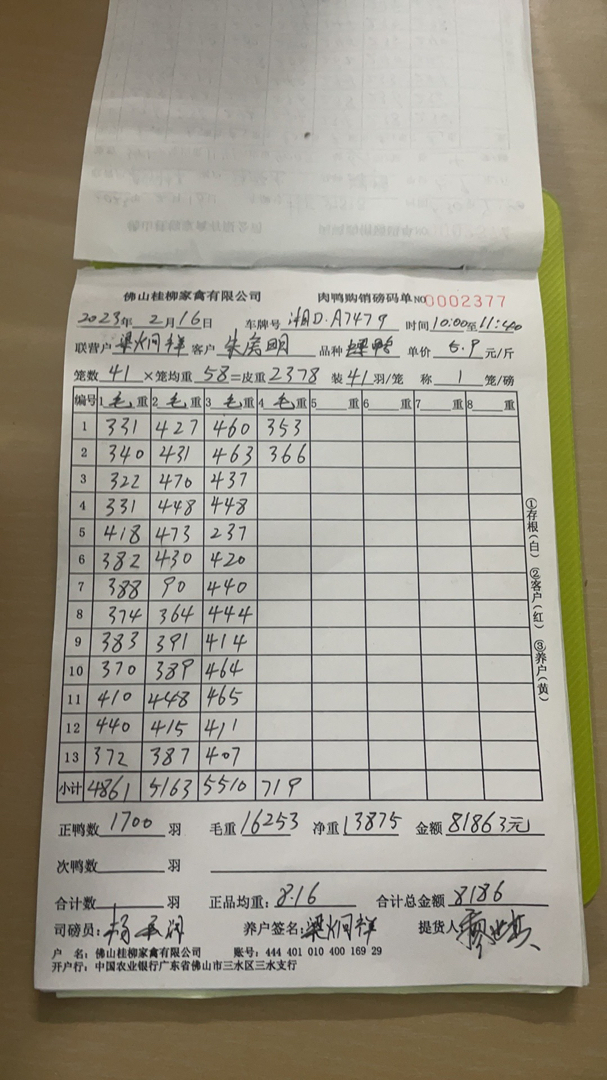 佛山桂柳家禽有限公司 肉鸭购销磅码单 NO 0002377
2023年 2月16日 车牌号 湘D.A7479 时间 10:00至11:40
联营户 梁炳祥 客户 品种 单价 5.9 元/斤
笼数 41 ×笼均重 58=皮重 2378 装 41 羽/笼 称 1 笼/磅
编号 1毛重 2毛重 3毛重 4毛重 5重 6重 7重 8重
1 331 427 460 353
2 340 431 463 366
3 322 470 437
4 331 448 448
5 418 473 237
6 382 430 420
7 388 90 440
8 374 364 444
9 383 391 414
10 370 389 464
11 410 448 465
12 440 415 411
13 372 387 407
小计 4861 5163 5510 719
①存根(白) ②客户(红) ③养户(黄)
正鸭数 1700 羽 毛重 16253 净重 13875 金额 81863元
次鸭数 羽
合计数 羽 正品均重: 8.16 合计总金额 8186
司磅员: 养户签名: 梁炳祥 提货人
户 名: 佛山桂柳家禽有限公司 账号: 444 401 010 400 169 29
开户行: 中国农业银行广东省佛山市三水区三水支行